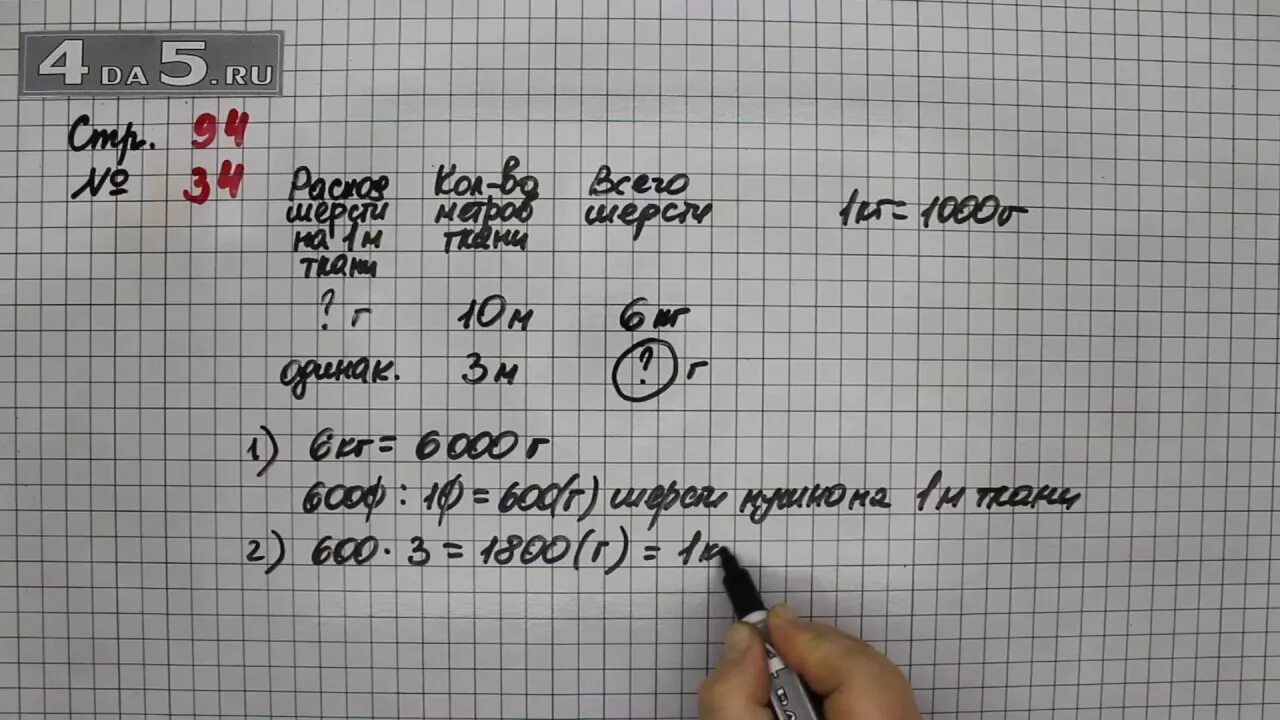 4DA5.RU
Стр. 94
№ 34
Расход шерсти на 1м ткани
Кол-во метров ткани
Всего шерсти
1кг = 1000г
? г 10м 6кг
одинак. 3м ? г
1) 6кг = 6000г
6000 : 10 = 600(г) шерсти нужно на 1м ткани
2) 600 · 3 = 1800(г) = 1к